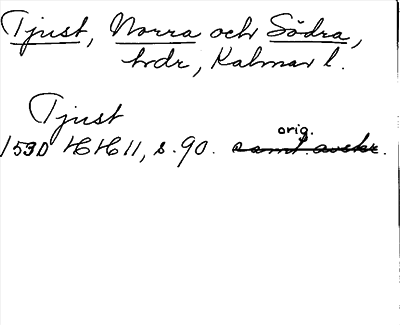 Tjust, Norra och Södra,
hdr, Kalmar l.
Tjust
orig.
1530 HH 11, s. 90. samt. avskr.